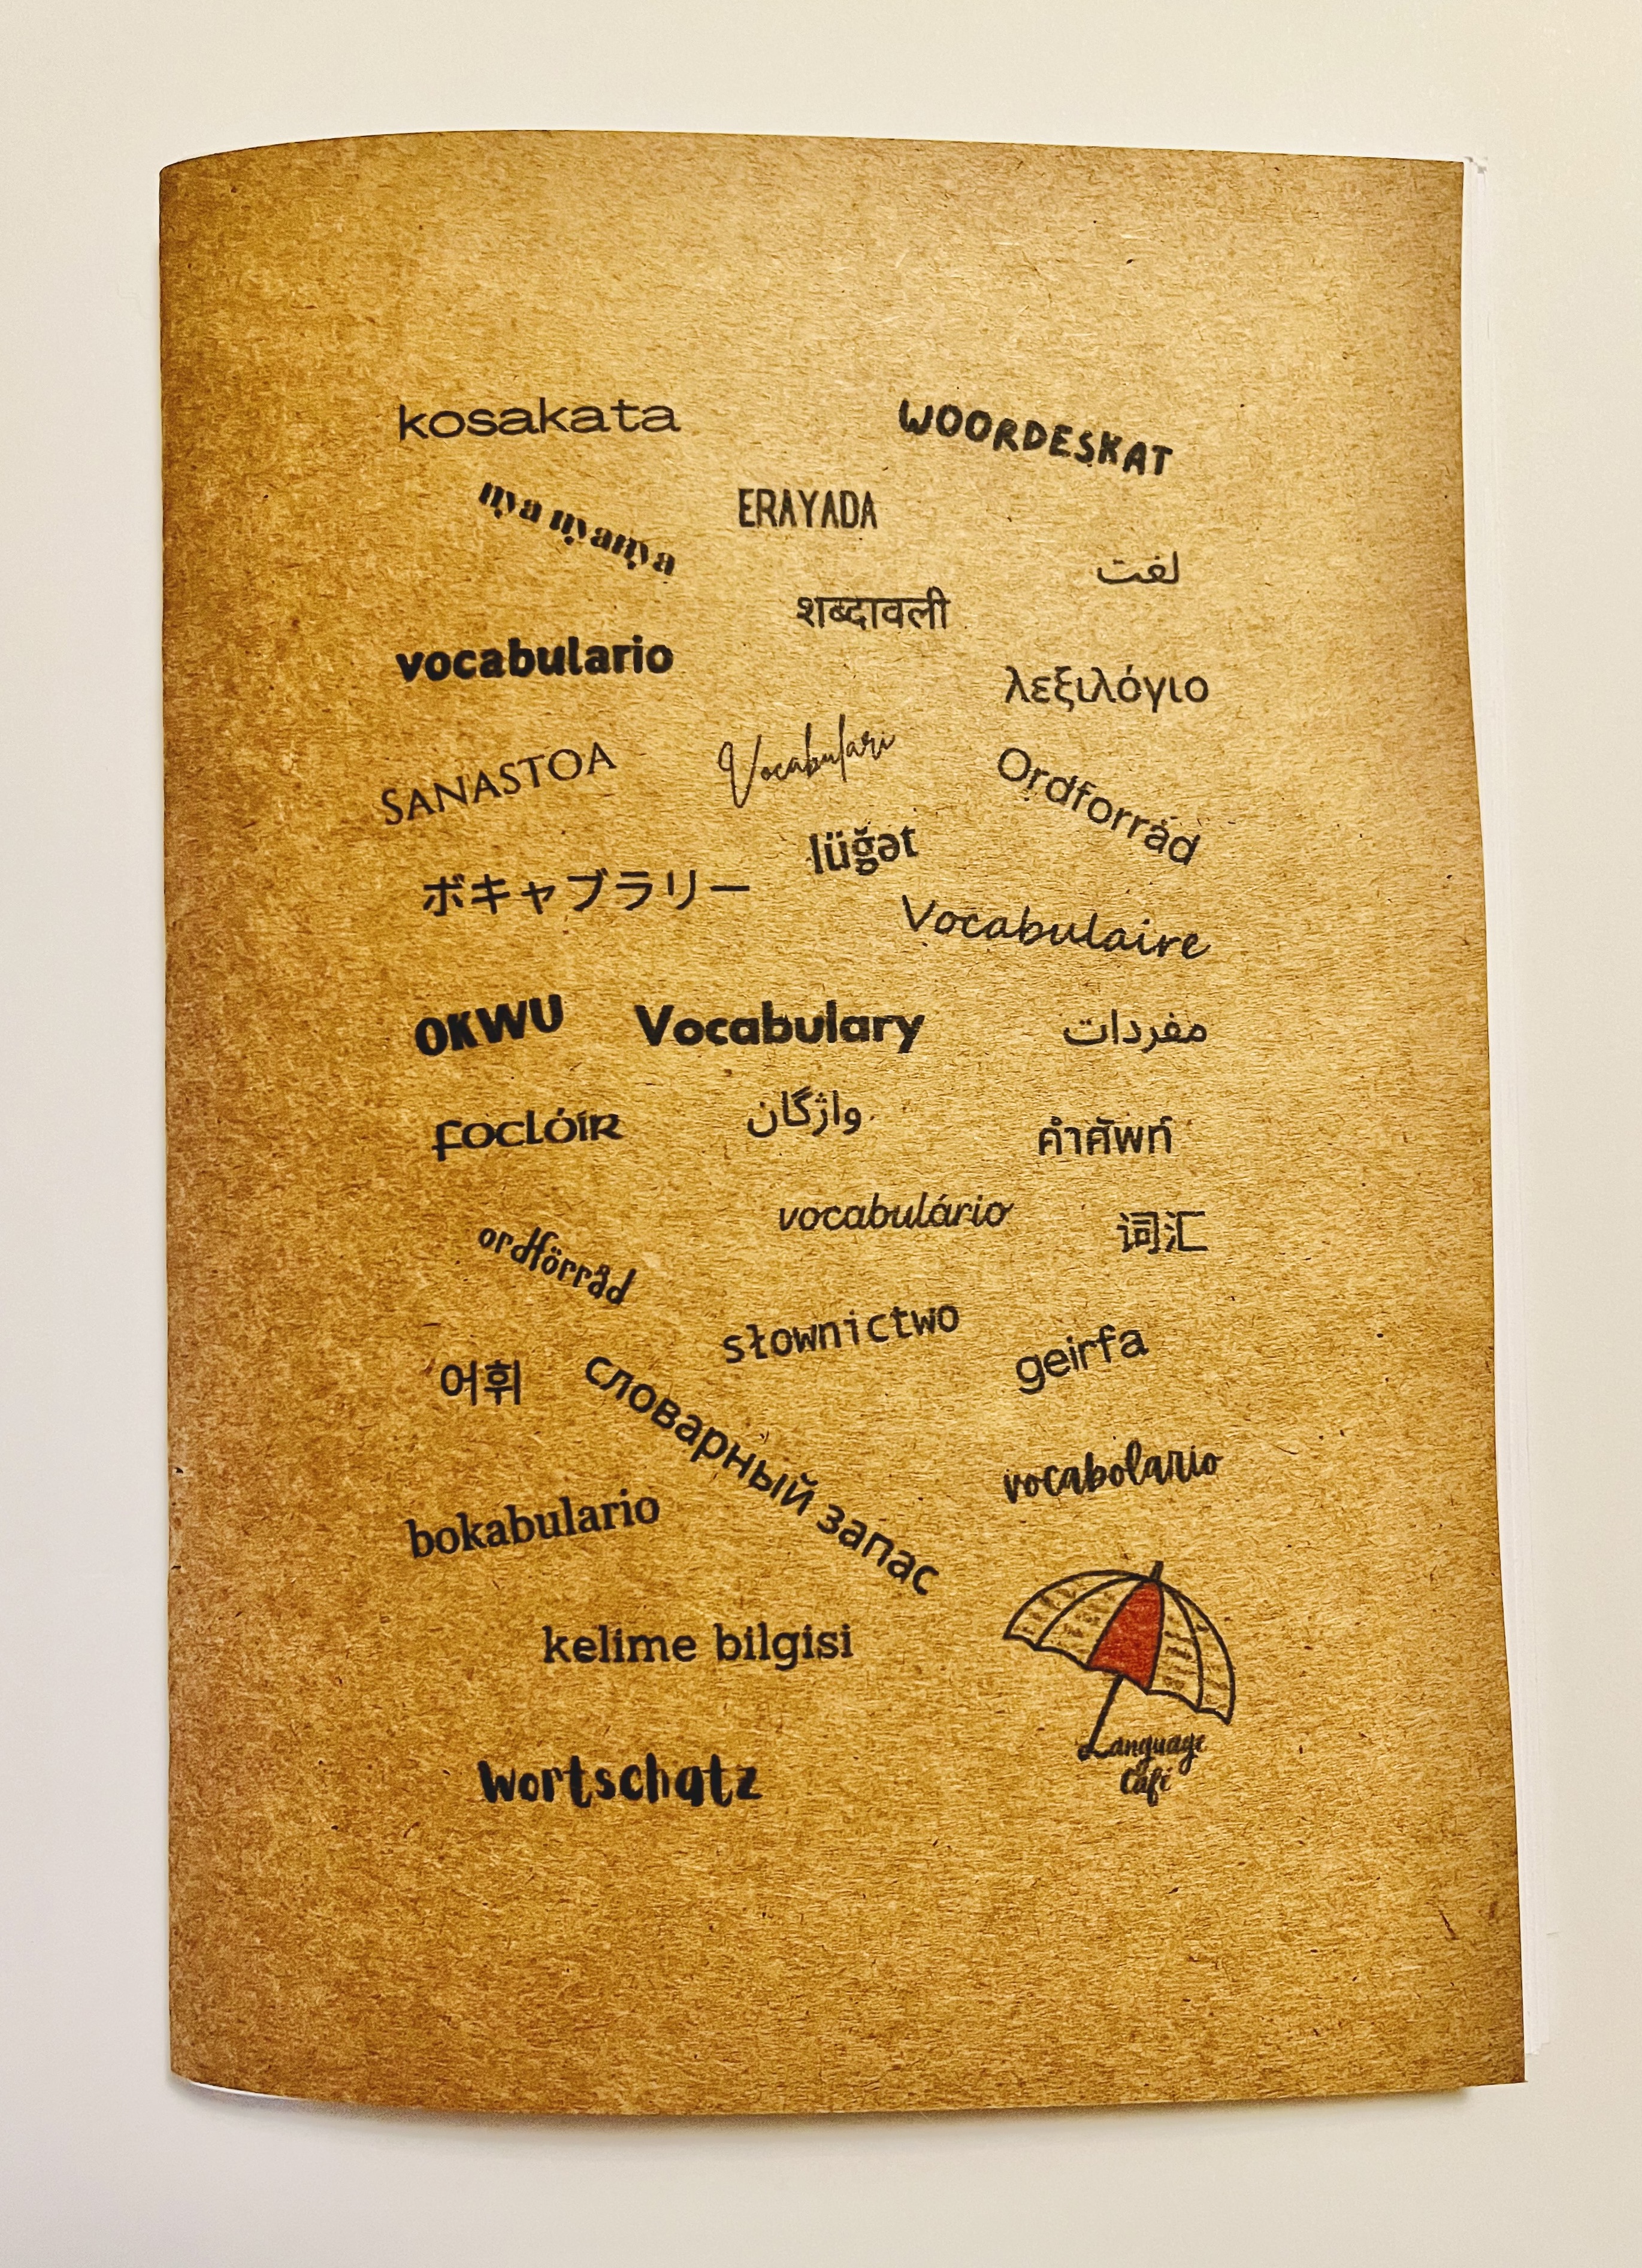 kosakata
WOORDESKAT
nya nyanya
ERAYADA
لغت
शब्दावली
vocabulario
λεξιλόγιο
SANASTOA
Vocabulari
Ordforråd
lüğət
ボキャブラリー
Vocabulaire
OKWU
Vocabulary
مفردات
foclóir
واژگان
คำศัพท์
vocabulário
词汇
ordförråd
słownictwo
geirfa
어휘
словарный запас
vocabolario
bokabulario
kelime bilgisi
Language
Café
wortschatz